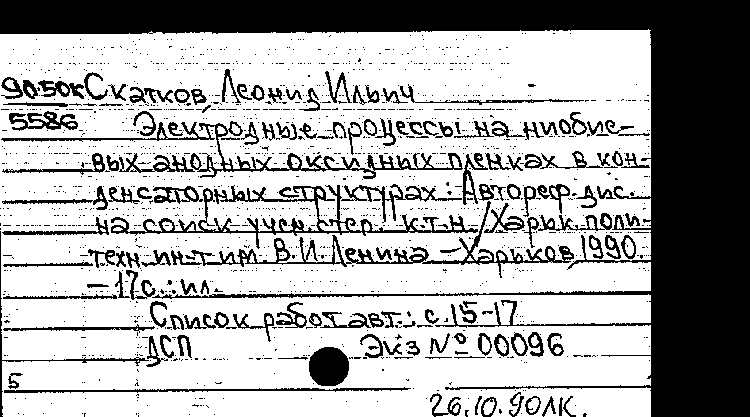 90.50к Скатков, Леонид Ильич
5586 Электродные процессы на ниобие-
вых анодных оксидных пленках в кон-
денсаторных структурах: Автореф. дис.
на соиск. учен. степ. к.т.н. / Харьк. поли-
техн. ин-т им. В.И. Ленина – Харьков, 1990.
– 17с.: ил.
Список работ авт.: с. 15-17
ДСП Экз № 00096
5
26.10.90ЛК.